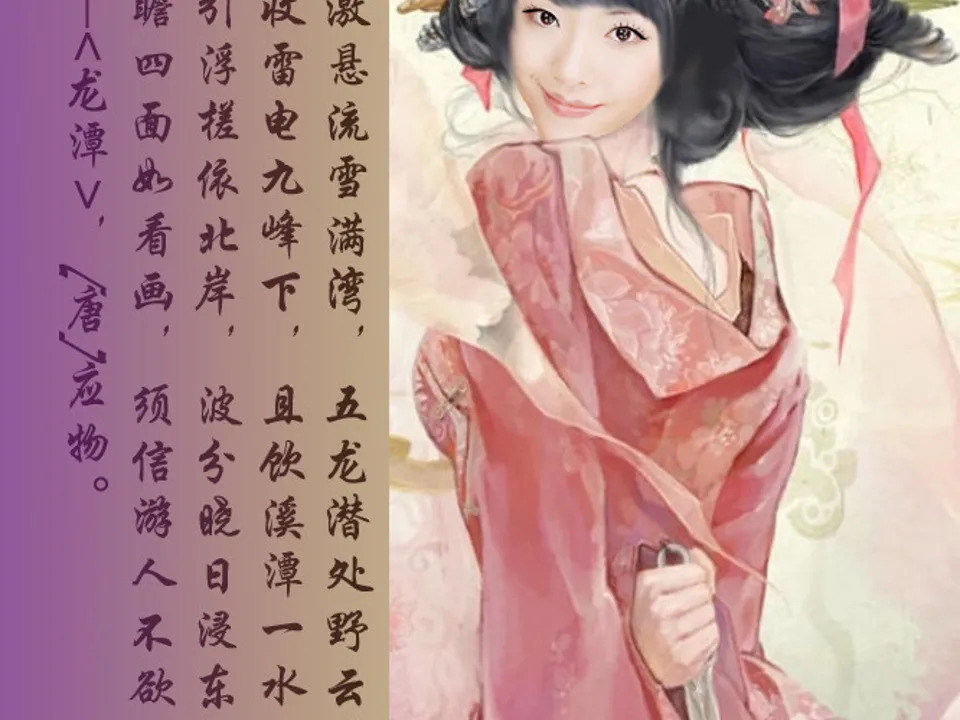 激悬流雪满湾，五龙潜处野云
收雷电九峰下，且饮溪潭一水
引浮槎依北岸，波分晓日浸东
瞻四面如看画，须信游人不欲
—<龙潭>，〔唐〕应物。